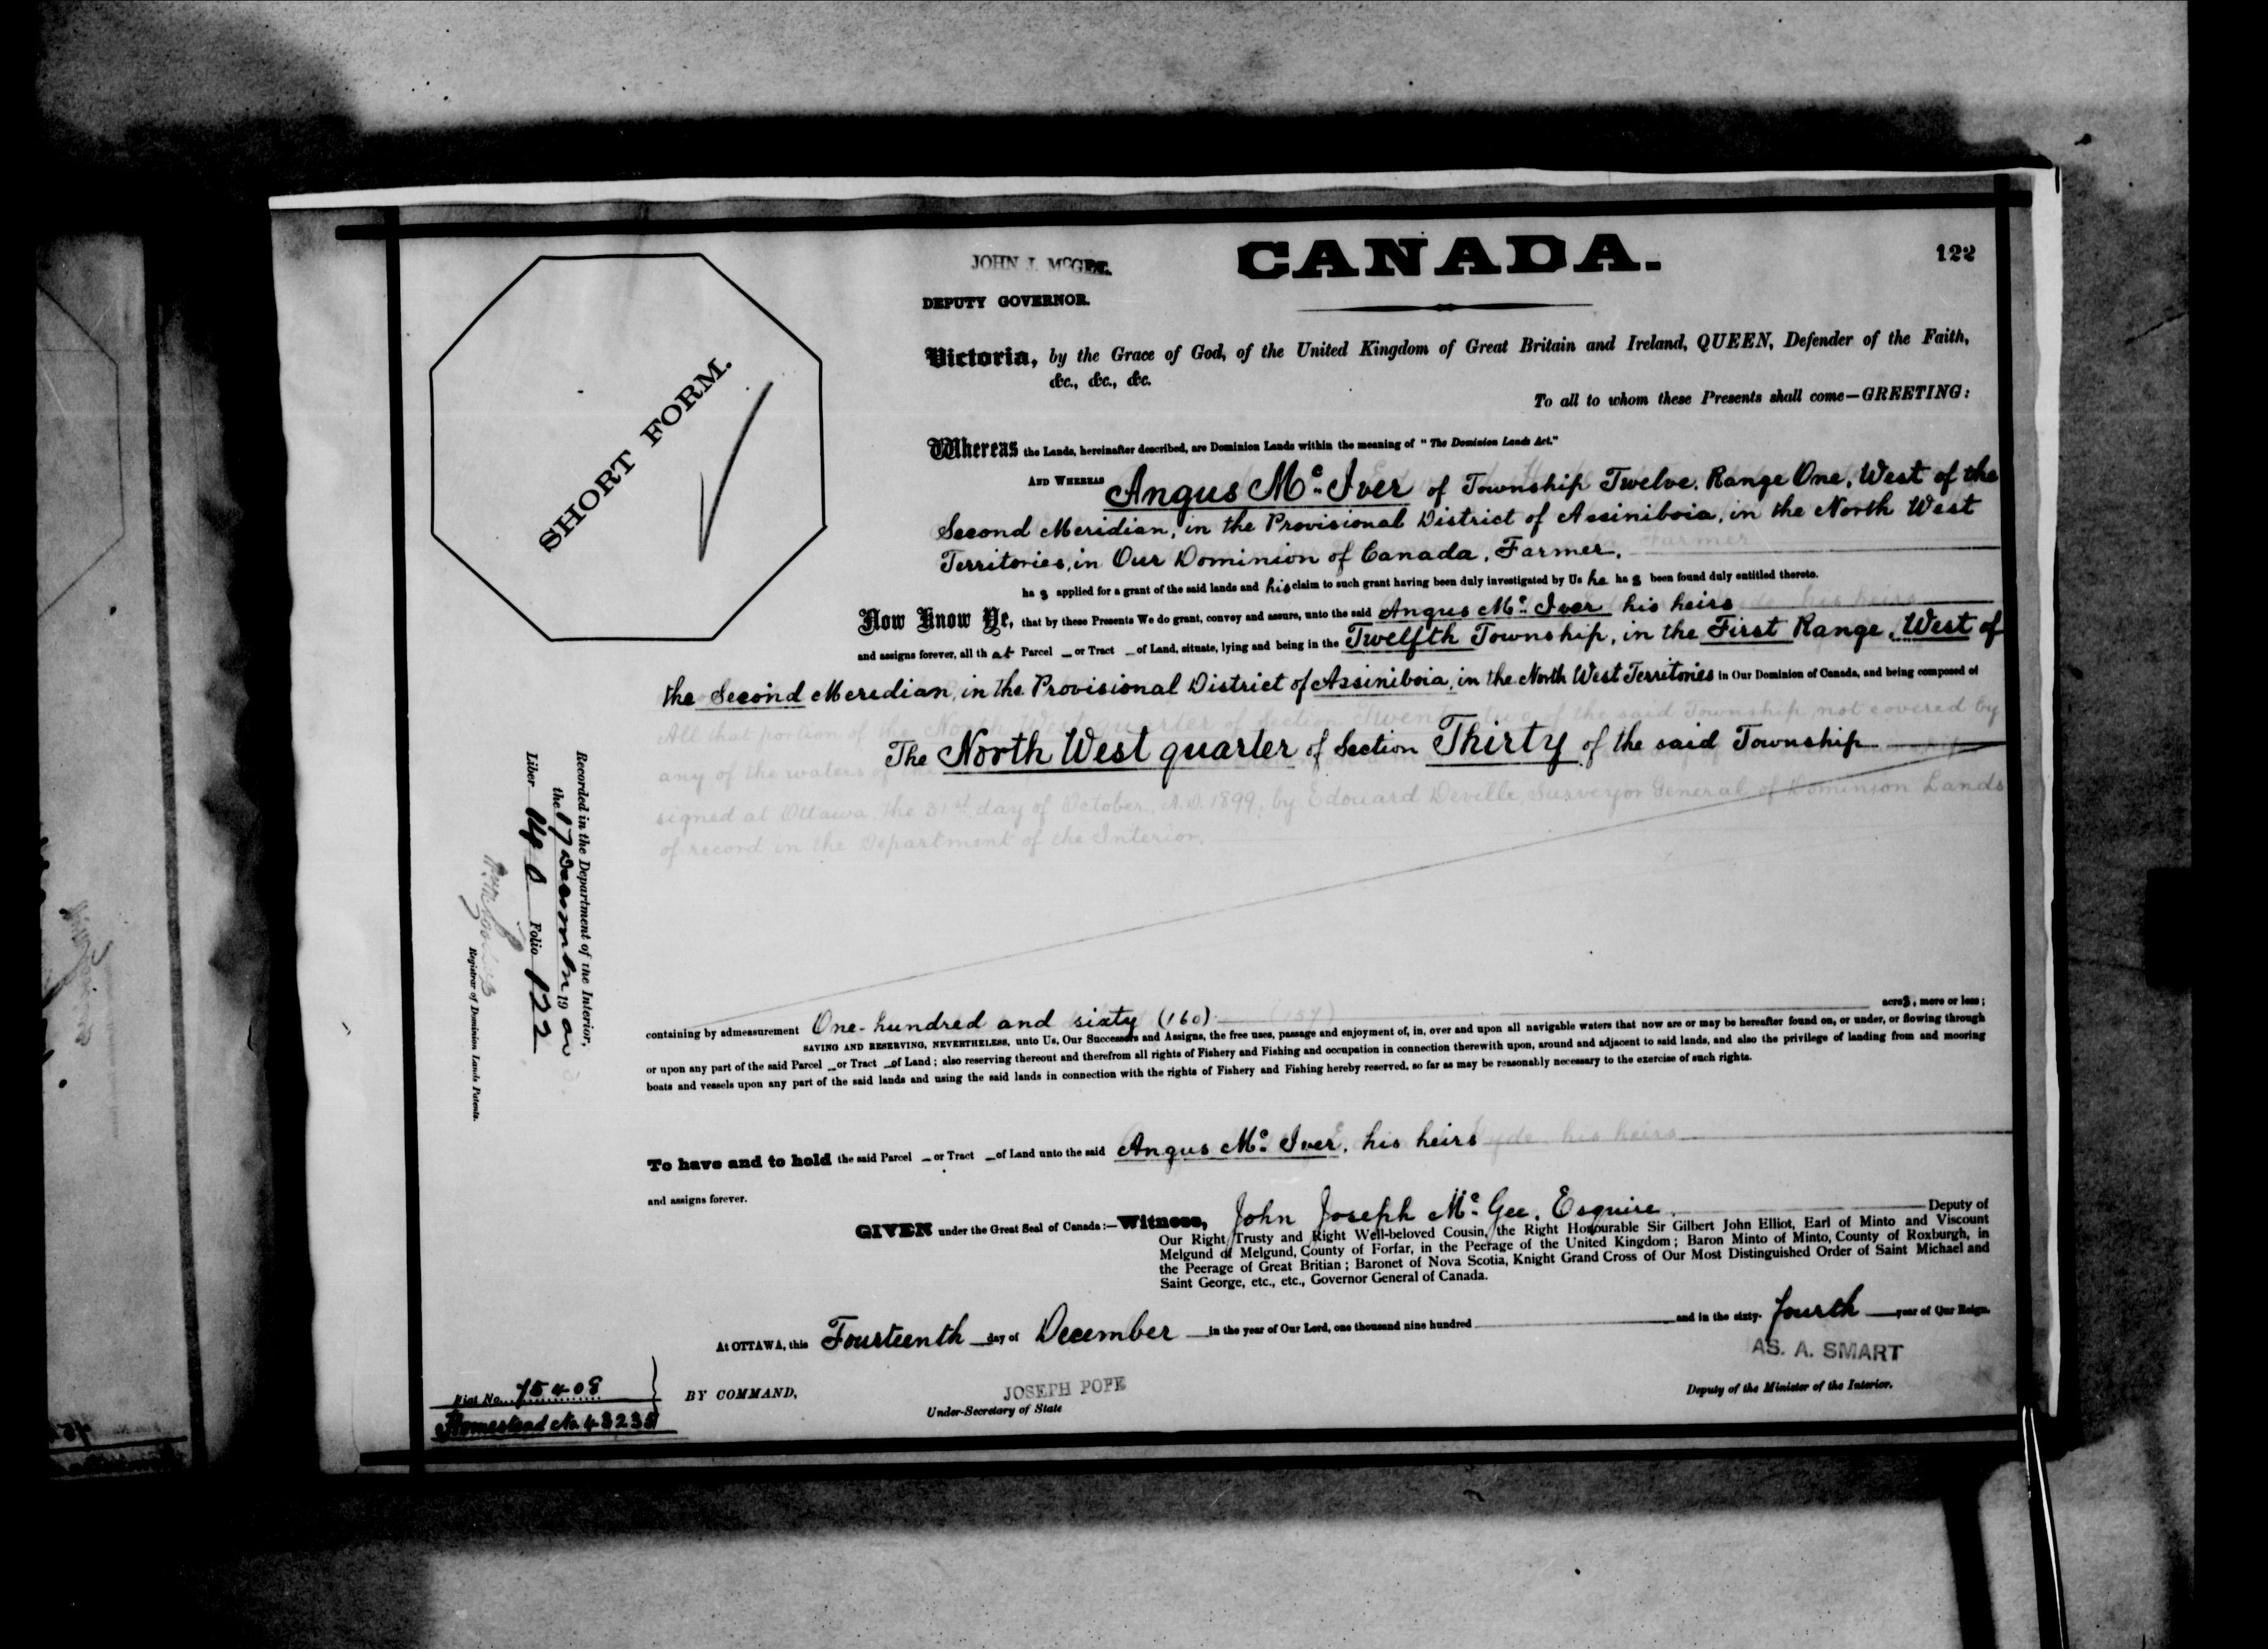 122
JOHN J. McGEE.
CANADA.
DEPUTY GOVERNOR.
SHORT FORM.
Victoria, by the Grace of God, of the United Kingdom of Great Britain and Ireland, QUEEN, Defender of the Faith,
&c., &c., &c.
To all to whom these Presents shall come—GREETING:
Whereas the Lands, hereinafter described, are Dominion Lands within the meaning of "The Dominion Lands Act."
AND WHEREAS Angus Mc. Iver of Township Twelve, Range One, West of the
Second Meridian, in the Provisional District of Assiniboia, in the North West
Territories, in Our Dominion of Canada, Farmer.
ha s applied for a grant of the said lands and his claim to such grant having been duly investigated by Us he ha s been found duly entitled thereto.
Now Know Ye, that by these Presents We do grant, convey and assure, unto the said Angus Mc. Iver his heirs
and assigns forever, all th at Parcel – or Tract – of Land, situate, lying and being in the Twelfth Township, in the First Range, West of
the Second Meredian, in the Provisional District of Assiniboia, in the North West Territories in Our Dominion of Canada, and being composed of
All that portion of the North West quarter of Section of the said Township not covered by
The North West quarter of Section Thirty of the said Township
any of the waters of the
signed at Ottawa, the 31st day of October, A.D. 1899, by Edouard Deville, Surveyor General of Dominion Lands
of record in the Department of the Interior.
Recorded in the Department of the Interior,
the 17 December 19 00
Liber Folio 122
Registrar of Dominion Lands Patents.
containing by admeasurement One hundred and sixty (160) (157) acres, more or less;
SAVING AND RESERVING, NEVERTHELESS, unto Us, Our Successors and Assigns, the free uses, passage and enjoyment of, in, over and upon all navigable waters that now are or may be hereafter found on, or under, or flowing through
or upon any part of the said Parcel – or Tract – of Land; also reserving thereout and therefrom all rights of Fishery and Fishing and occupation in connection therewith upon, around and adjacent to said lands, and also the privilege of landing from and mooring
boats and vessels upon any part of the said lands and using the said lands in connection with the rights of Fishery and Fishing hereby reserved, so far as may be reasonably necessary to the exercise of such rights.
To have and to hold the said Parcel – or Tract – of Land unto the said Angus Mc. Iver, his heirs his heirs
and assigns forever.
GIVEN under the Great Seal of Canada:—Witness, John Joseph Mc. Gee, Esquire. Deputy of
Our Right Trusty and Right Well-beloved Cousin, the Right Honourable Sir Gilbert John Elliot, Earl of Minto and Viscount
Melgund of Melgund, County of Forfar, in the Peerage of the United Kingdom; Baron Minto of Minto, County of Roxburgh, in
the Peerage of Great Britian; Baronet of Nova Scotia, Knight Grand Cross of Our Most Distinguished Order of Saint Michael and
Saint George, etc., etc., Governor General of Canada.
At OTTAWA, this Fourteenth day of December in the year of Our Lord, one thousand nine hundred and in the sixty- fourth year of Our Reign.
AS. A. SMART
Deputy of the Minister of the Interior.
BY COMMAND,
JOSEPH POPE
Under-Secretary of State
Fiat No. 75408
Homestead No. 43235